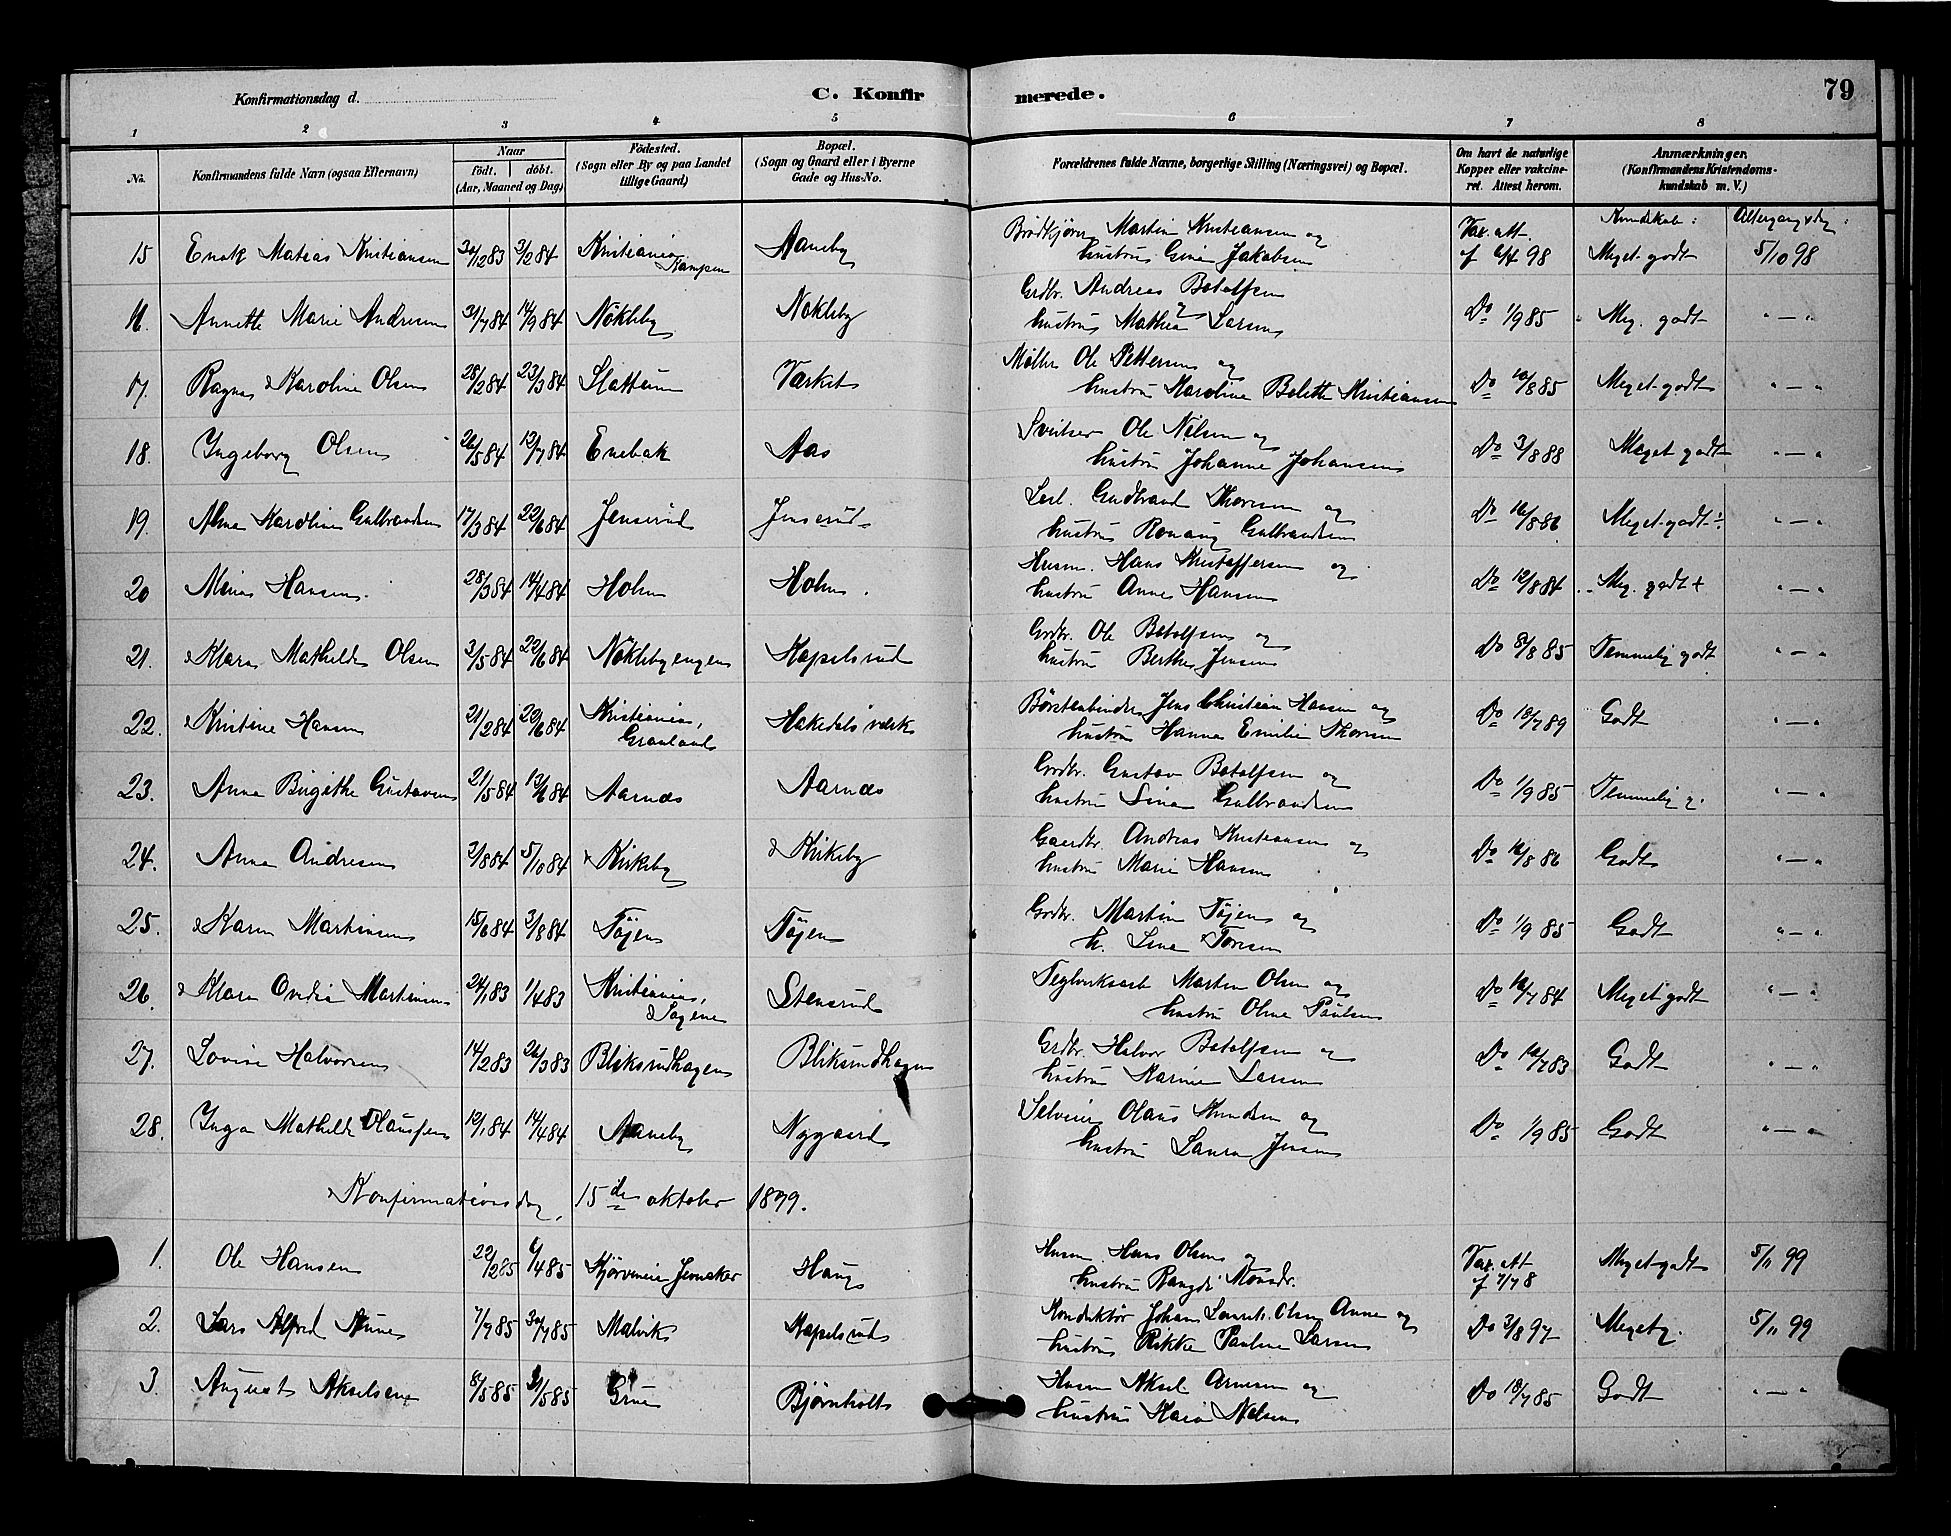 Konfirmationsdag d. C. Konfirmerede. 79
1 2 3 4 5 6 7 8
No. Konfirmandens fulde Navn (ogsaa Efternavn) Naar födt. döbt. (Aar, Maaned og Dag) Födested. (Sogn eller By og paa Landet tillige Gaard) Bopæl. (Sogn og Gaard eller i Byerne Gade og Hus-No. Forældrenes fulde Navne, borgerlige Stilling (Næringsvei) og Bopæl. Om havt de naturlige Kopper eller vakcineret. Attest herom. Anmærkninger. (Konfirmandens Kristendomskundskab m. V.)
Kundskab: Altergangsdag:
15 Enok Matias Kristiansen 30/12 83 3/2 84 Kristiania Kampen Aaneby Brødkjører Martin Kristiansen og
hustru Gina Jakobsen Vax. att. f 6/4 98 Meget godt 5/10 98
16. Annette Marie Andresen 31/7 84 14/9 84 Nökleby Nökleby Grdbr. Andreas Botolfsen og
hustru Mathea Larsen Do 1/9 85 Meg. godt " — "
17. Ragna Karoline Olsen 28/2 84 23/3 84 Slattum Værket Møller Ole Pettersen og
hustru Karoline Belette Kristiansen Do 10/8 85 Meget godt " — "
18. Ingeborg Olsen 26/5 84 12/7 84 Enebak Aas Sveitser Ole Nilsen og
hustru Johanne Johansen Do 3/8 88 Meget godt " — "
19. Alma Karoline Gulbrandsen 17/3 84 22/6 84 Jenserud Jenserud Gudbrand Thoresen og
hustru Gulbrandsen Do 16/8 86 Meget godt ÷ " — "
20 Mina Hansen. 28/3 84 14/4 84 Holm Holm. Husm. Hans Kristoffersen og
hustru Anne Hansen Do 12/8 84 Meg. godt + " — "
21. Klara Mathilde Olsen 3/5 84 22/6 84 Nöklebyengen Kapelsrud Grdbr. Ole Botolfsen og
hustru Berthe Jensen Do 8/8 85 Temmelig godt " — "
22. Kristine Hansen 21/2 84 22/6 84 Kristiania, Grønland Hakedals værk Børstenbinder Jens Christian Hansen og
hustru Hanna Emilie Thoresen Do 18/7 89 Godt " — "
23. Anna Birgithe Gustavsen 21/5 84 13/6 84 Aarnæs Aarnæs Grdbr. Gustav Botolfsen og
hustru Lina Gulbrandsen Do 1/9 85 Temmelig g. " — "
24. Anna Andresen 3/8 84 5/10 84 Kirkeby Kirkeby Gaardbr. Andreas Kristiansen og
hustru Marie Hansen Do 16/8 86 Godt " — "
25. Karen Martinsen 15/6 84 3/8 84 Töjen Töjen Grdbr. Martin Töjen og
h. Lina Toresen Do 1/9 85 Godt " — "
26. Klara Ovidia Martinsen 24/1 83 1/4 83 Kristiania, Sagene Stensrud Teglverksarb Martin Olsen og
hustru Oline Paulsen Do 16/7 84 Meget godt " — "
27. Lovise Halvorsen 14/2 83 26/3 83 Bliksrudhagen Bliksrudhagen Grdbr. Halvor Botolfsen og
hustru Karine Larsen Do 16/7 83 Godt " — "
28. Inga Mathilde Olausen 12/1 84 14/4 84 Aaneby Nygaard Selveier Olaus Knudsen og
hustru Laura Jensen Do 1/9 85 Godt " — "
Konfirmationsdag, 15de oktober 1899.
1. Ole Hansen 22/2 85 6/4 85 Jevnaker Haug Husm. Hans Olsen og
hustru Rangdi Monsdr. Vax. att f 7/7 8 Meget godt 5/11 99
2. Lars Alfred Aune 7/7 85 30/7 85 Malvik Kapelsrud Konduktør Johan Laurits Olsen Aune og
hustru Rikke Pauline Larsen Do 3/8 97 Meget g. 5/11 99
3. August Akselsen 8/5 85 31/5 85 Grue Bjørnholt Husm Aksel Arnesen og
hustru Kari Nilsen Do 18/7 85 Godt " — "